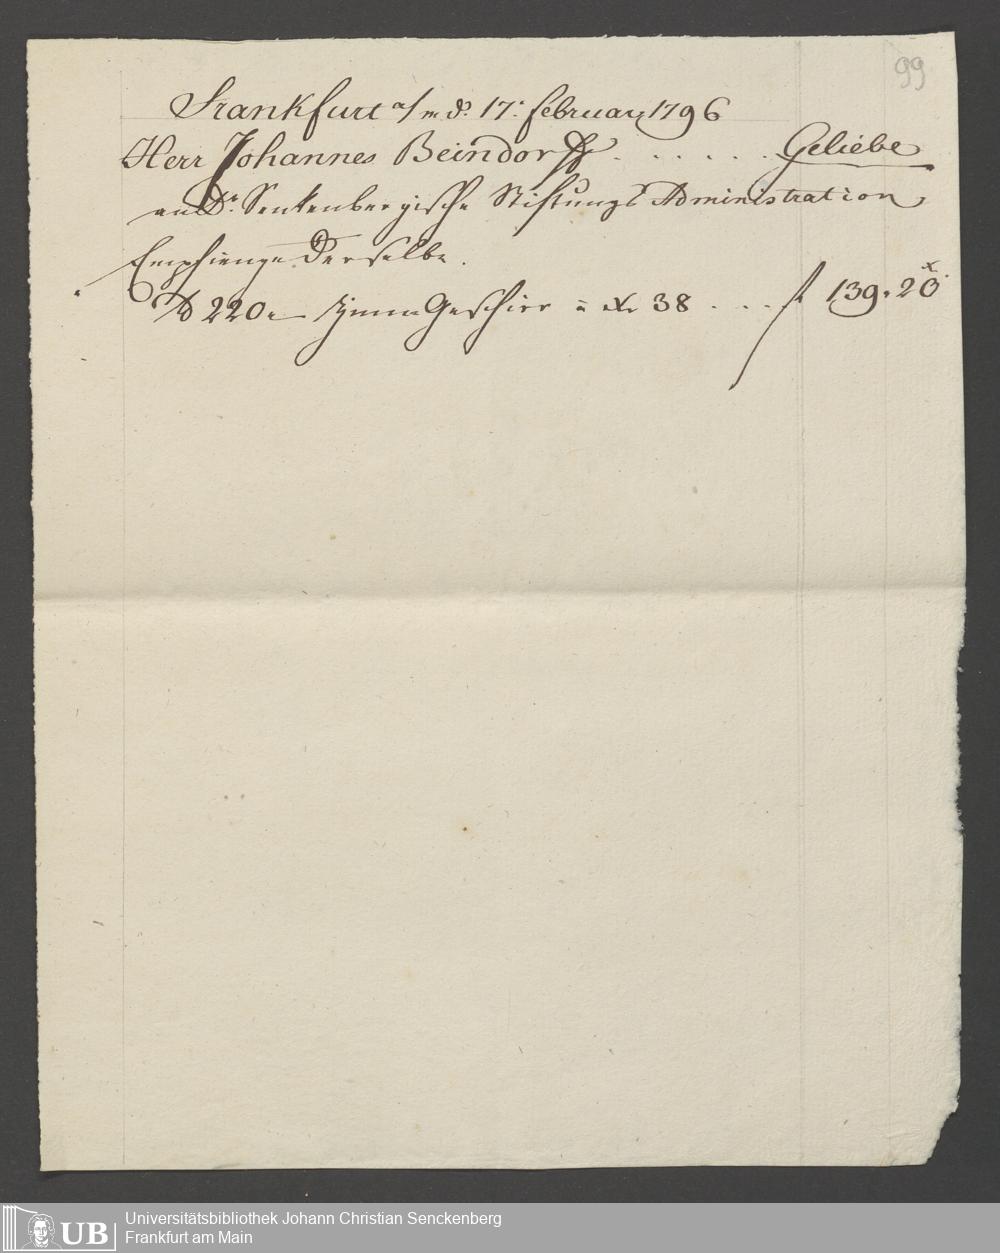 99
Frankfurt a/m d: 17: februar 1796
Herr Johannes Beindorff . . . . . . Geliebe
an Dr: Senkenbergische Stiftungs Administration
Empfienge Derselbe.
℔ 220 Zinn Geschirr à Xr 38 . . . f 139. 20 x.
UB
Universitätsbibliothek Johann Christian Senckenberg
Frankfurt am Main